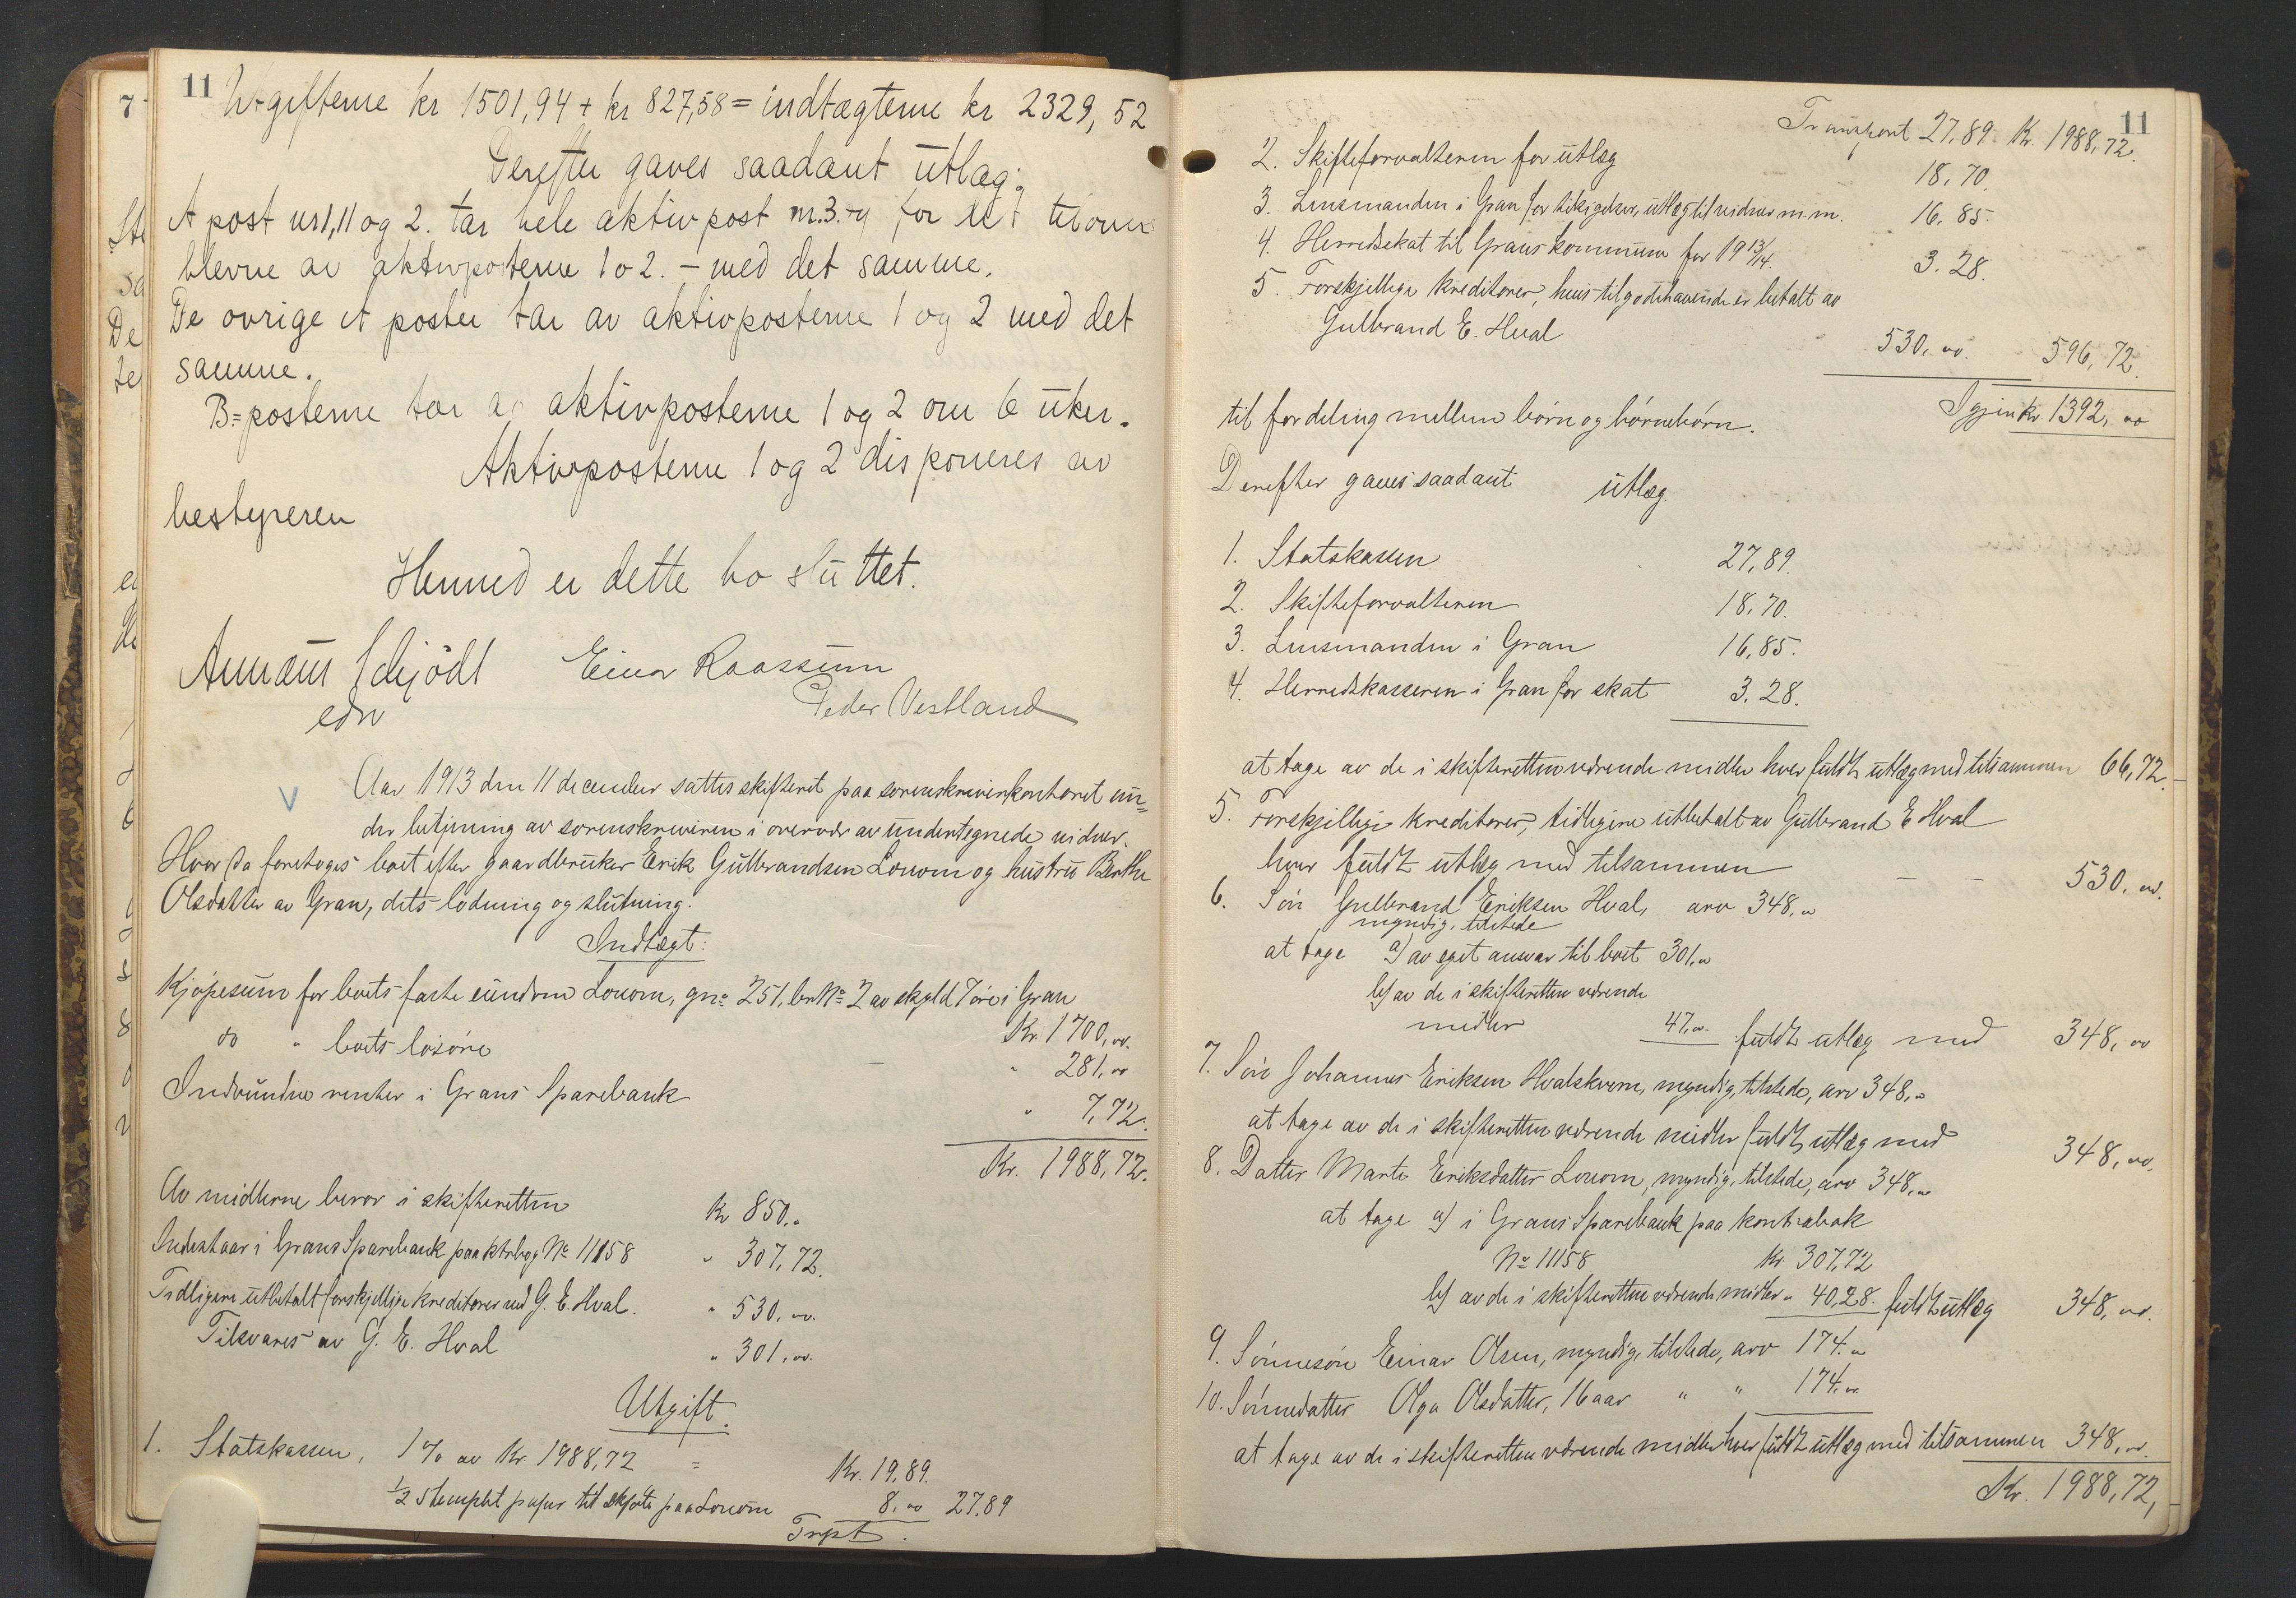 11
Utgifterne kr 1501,94 + kr 827,58 = indtægterne kr 2329,52
Derefter gaves saadant utlæg:
A post nr 1, 11 og 2. tar hele aktivpost nr. 3. og for det tilovers
blevne av aktivposterne 1 o 2. – med det samme.
De øvrige A poster tar av aktivposterne 1 og 2 med det
samme.
B=posterne tar av aktivposterne 1 og 2 om 6 uker.
Aktivposterne 1 og 2 disponeres av
bestyreren
Hermed er dette bo sluttet.
Schjödt Einar Raassum
edv Peder Vestland
V Aar 1913 den 11 december sattes skifteret paa sorenskriverkontoret un=
der betjening av sorenskriveren i overvær av undertegnede vidner.
Hvor da foretoges boet efter gaardbruker Erik Gulbrandsen Louom og hustru Berthe
Olsdatter av Gran, dets lodning og slutning.
Indtægt:
Kjøpesum for boets faste eiendom Louom, gno 251, brNo 2 av skyld 7 øre i Gran
Kr. 1700,00.
do " boets løsøre – " 281,00
Indvundne renter i Grans Sparebank " 7,72.
Kr. 1988,72.
Av midlerne beror i skifteretten Kr 850,"
Indestaar i Grans Sparebank paa ktrbog No 11158 " 307,72.
Tidligere utbetalt forskjellige kreditorer ved G. E. Hval. " 530,00.
Tilsvares av G. E. Hval " 301,00.
Utgift.
1. Statskassen, 1 % av Kr. 1988,72 = Kr. 19,89.
1/2 stemplet papir til skjøte paa Louom 8,00 27,89
Trpt.
11
Transport 27,89. Kr. 1988,72.
2. Skifteforvalteren for utlæg 18,70.
3. Lensmanden i Gran for utlæg til vidner m.m. 16,85.
4. Herredsskat til Grans kommune for 19 13/14. 3.28.
5. Forskjellige kreditorer, hvis tilgodehavende er betalt av
Gulbrand E. Hval 530,00. 596,72.
Igjen Kr. 1392,00
til fordeling mellem børn og børnebørn.
Derefter gaves saadant utlæg.
1. Statskassen 27,89.
2. Skifteforvalteren 18,70.
3. Lensmanden i Gran 16,85.
4. Herredskasseren i Gran for skat 3,28.
at tage av de i skifteretten værende midler hver fuldt utlæg med tilsammen 66,72.
5. Forskjellige kreditorer, tidligere utbetalt av Gulbrand E Hval
hver fuldt utlæg med tilsammen – – 530,00.
6. Søn Gulbrand Eriksen Hval, arv 348,00
myndig, tilstede
at tage a) av eget ansvar til boet 301,00
b) av de i skifteretten værende
midler 47,00. fuldt utlæg med 348,00
7. Søn Johannes Eriksen Hvalskvern, myndig, tilstede, arv 348,00
at tage av de i skifteretten værende midler fuldt utlæg med 348,00.
8. Datter Marte Eriksdatter Louom, myndig, tilstede, arv 348,00
at tage a) i Grans Sparebank paa kontrabok
No 11158 Kr. 307,72
b) av de i skifteretten værende midler " 40,28. fuldt utlæg 348,00.
9. Sønnesøn Einar Olsen, myndig, tilstede, arv 174.00
10. Sønnedatter Olga Olsdatter, 16 aar " " 174.00
at tage av de i skifteretten værende midler hver fuldt utlæg med tilsammen 348,00.
Kr. 1988,72,